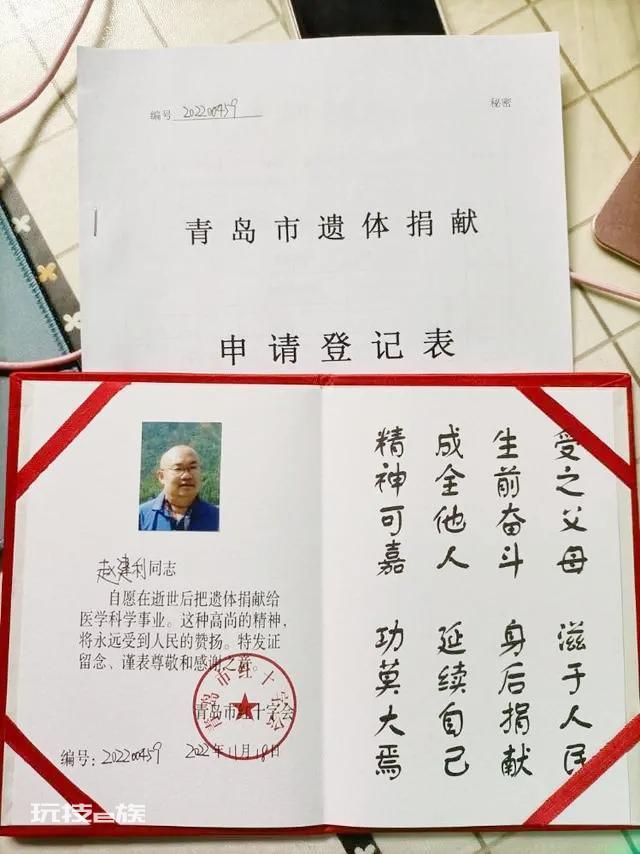 编号 202200459
秘密
青岛市遗体捐献
申请登记表
赵建利同志
自愿在逝世后把遗体捐献给
医学科学事业。这种高尚的精神，
将永远受到人民的赞扬。特发证
留念、谨表尊敬和感谢之意。
青岛市红十字会
青岛市红十字会
编号：202200459 2022年11月18日
受之父母 滋于人民
生前奋斗 身后捐献
成全他人 延续自己
精神可嘉 功莫大焉
玩技e族